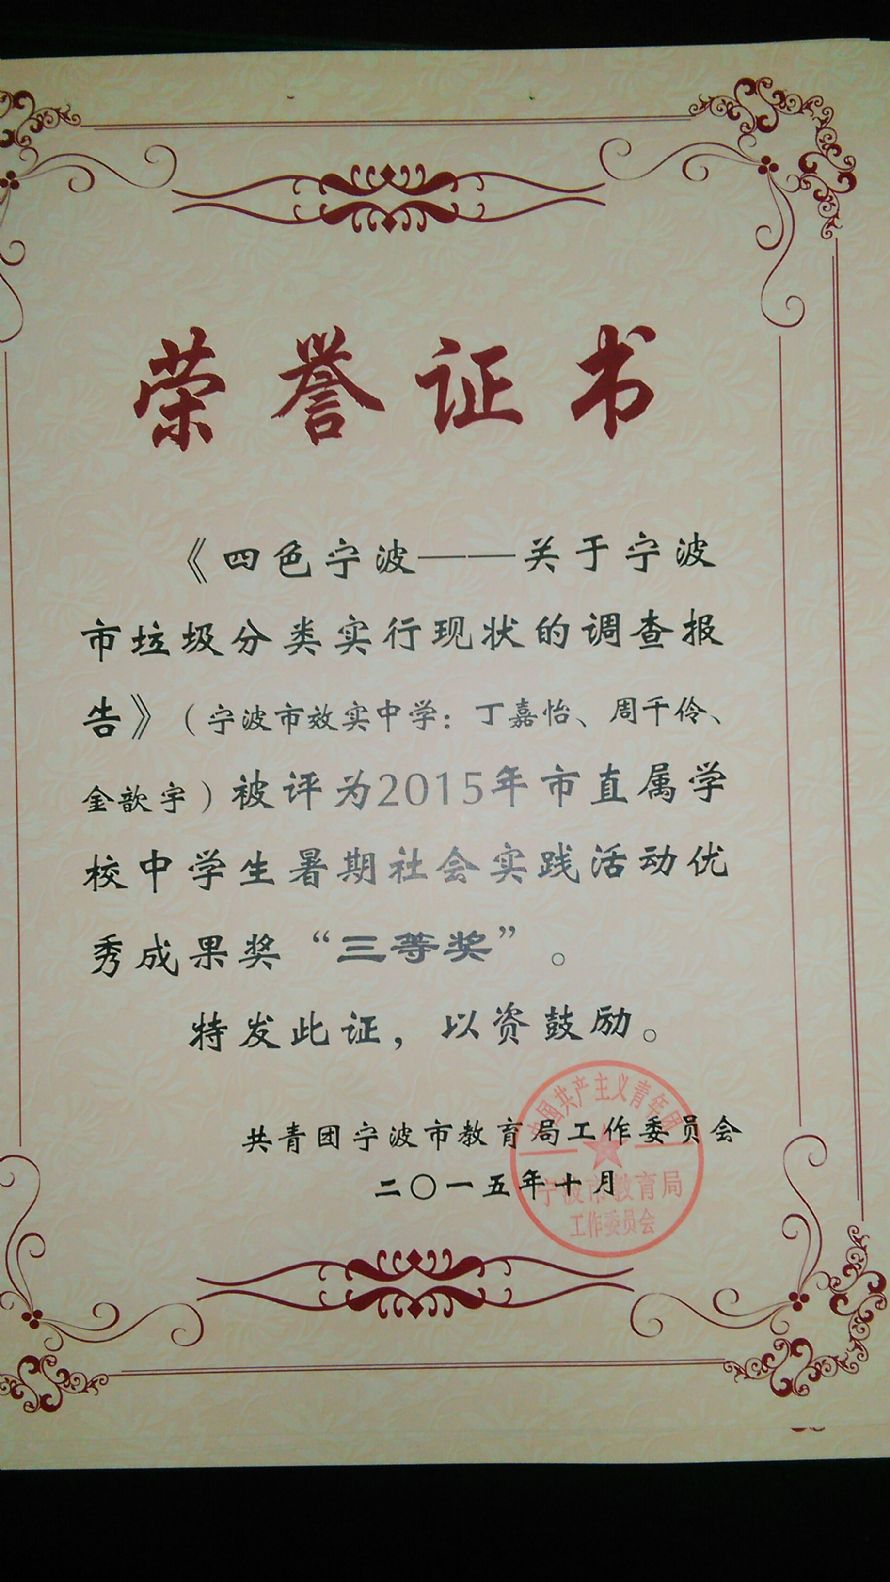 荣誉证书
《四色宁波——关于宁波
市垃圾分类实行现状的调查报
告》（宁波市效实中学：丁嘉怡、周千伶、
金歆宇）被评为2015年市直属学
校中学生暑期社会实践活动优
秀成果奖“三等奖”。
特发此证，以资鼓励。
共青团宁波市教育局工作委员会
二〇一五年十月
中国共产主义青年团
宁波市教育局
工作委员会